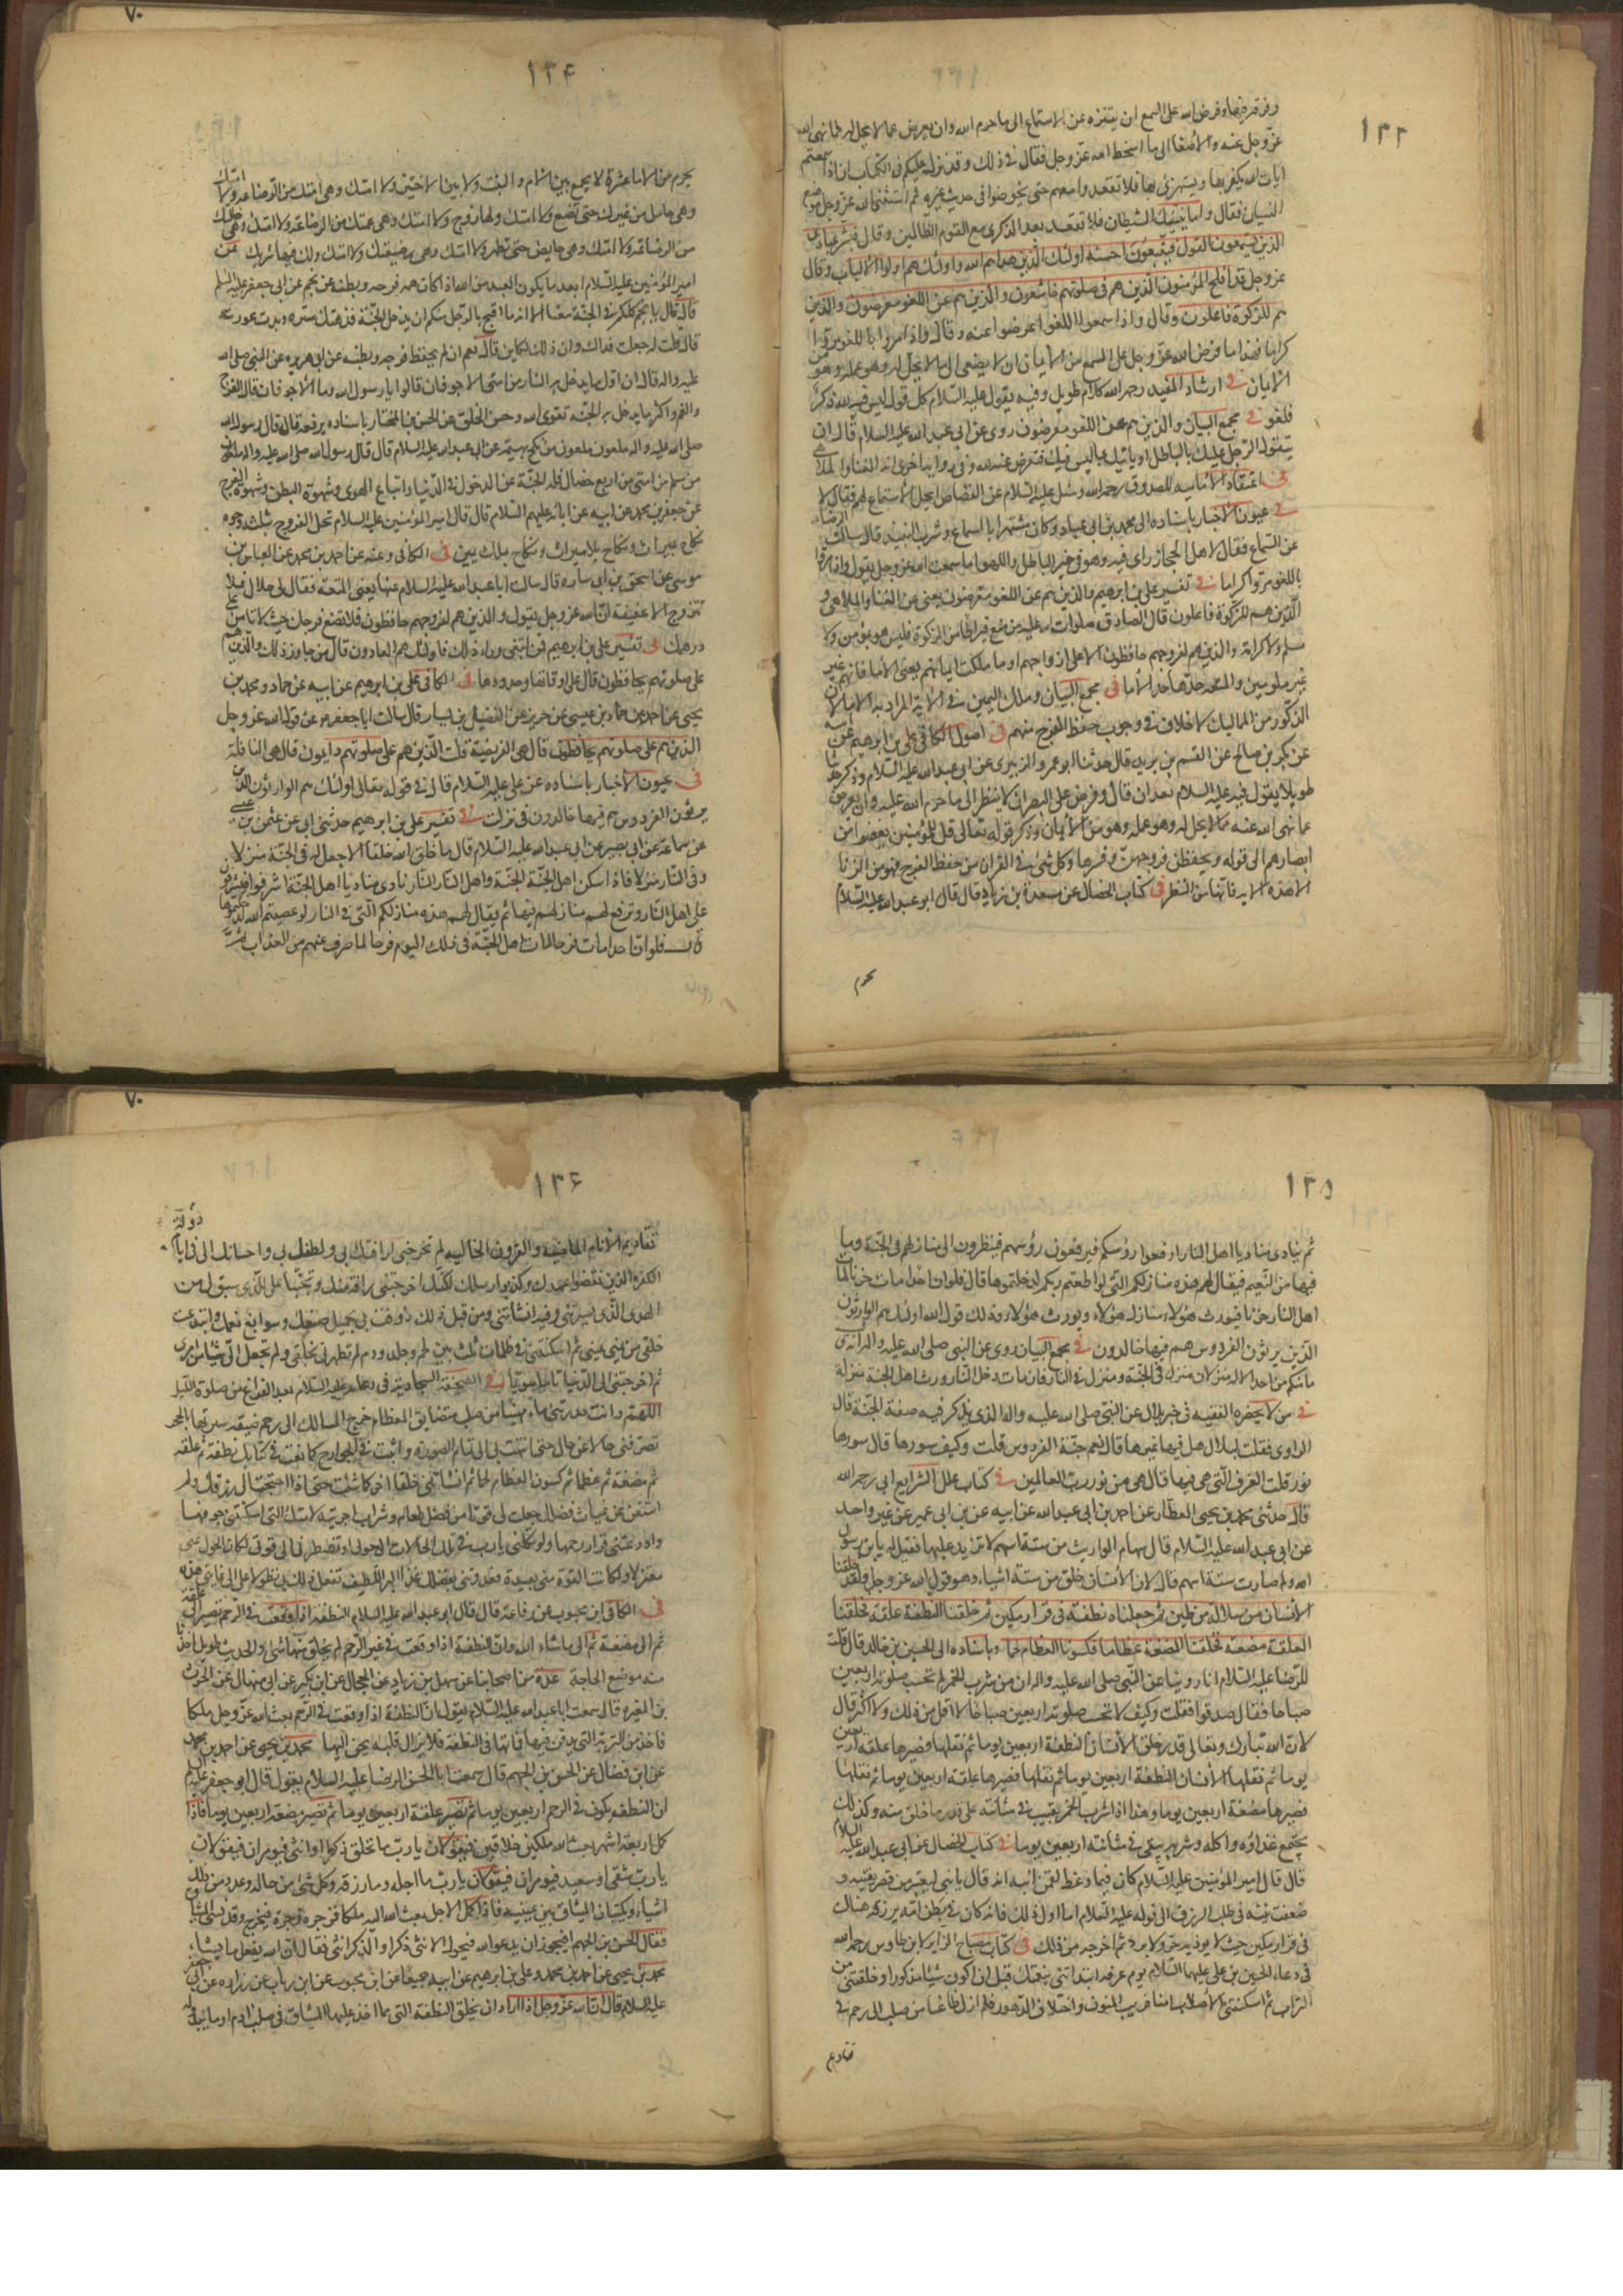 ١٣٣
وفرقه فيها وفرض الله على السمع ان يتنزه عن الاستماع الى ما حرم الله وان يعرض عما لا يحل له مما نهى الله
عز وجل عنه والاصغاء الى ما اسخط الله عز وجل فقال في ذلك وقد نزل عليكم في الكتاب ان اذا سمعتم
ايات الله يكفر بها ويستهزئ بها فلا تقعدوا معهم حتى يخوضوا في حديث غيره ثم استثنى الله عز وجل موضع
النسيان فقال واما ينسينك الشيطان فلا تقعد بعد الذكرى مع القوم الظالمين وقال فبشر عبادي
الذين يستمعون القول فيتبعون احسنه اولئك الذين هداهم الله واولئك هم اولوا الالباب وقال
عز وجل قد افلح المؤمنون الذين هم في صلوتهم خاشعون والذين هم عن اللغو معرضون والذين
هم للزكوة فاعلون وقال واذا سمعوا اللغو اعرضوا عنه وقال واذا مروا باللغو مروا
كراما فهذا ما فرض الله عز وجل على السمع من الايمان ان لا يصغى الى ما لا يحل له وهو عمله وهو من
الايمان في ارشاد المفيد رحمه الله كلام طويل وفيه يقول عليه السلام كل قول ليس فيه لله ذكر
فلغو في مجمع البيان والذين هم عن اللغو معرضون روى عن ابي عبد الله عليه السلام قال ان
يتقول الرجل عليك بالباطل او ياتيك بما ليس فيك فتعرض عنه لله وفي رواية اخرى انه الغناء والملاهي
في اعتقاد الامامية للصدوق رحمه الله وسئل عليه السلام عن القصاص ايحل الاستماع لهم فقال لا
في عيون الاخبار باسناده الى محمد بن ابي عباد وكان مشتهرا بالسماع وشرب النبيذ قال سالت الرضا
عن السماع فقال لاهل الحجاز راى فيه وهو في حيز الباطل واللهو اما سمعت الله عز وجل يقول واذا مروا
باللغو مروا كراما في تفسير علي بن ابرهيم والذين هم عن اللغو معرضون يعني عن الغناء والملاهي و
الذين هم للزكوة فاعلون قال الصادق صلوات الله عليه من منع قيراطا من الزكوة فليس هو بمؤمن ولا
مسلم ولا كرامة والذين هم لفروجهم حافظون الا على ازواجهم او ما ملكت ايمانهم يعني الاماء فانهم غير
غير ملومين والمتعة حدها حد الاماء في مجمع البيان وملك اليمين في الاية المراد به الاماء لان
الذكور من المماليك لا خلاف في وجوب حفظ الفرج منهم في اصول الكافي علي بن ابرهيم عن ابيه
عن بكر بن صالح عن القسم بن بريد قال حدثنا ابو عمرو الزبيري عن ابي عبد الله عليه السلام وذكر حديثا
طويلا يقول فيه عليه السلام بعد ان قال وفرض على البصر ان لا ينظر الى ما حرم الله عليه وان يعرض
عما نهى الله عنه مما لا يحل له وهو عمله وهو من الايمان وذكر قوله تعالى قل للمؤمنين يغضوا من
ابصارهم الى قوله ويحفظن فروجهن وفسرها وكل شيء في القران من حفظ الفرج فهو من الزنا
الا هذه الاية فانها من النظر في كتاب الخصال عن مسعدة بن زياد قال قال ابو عبد الله عليه السلام
يحرم
٧٠
١٣٤
يحرم من الاماء عشرة لا يجمع بين الام والبنت ولا بين الاختين ولا امتك وهي اختك من الرضاعة ولا امتك
وهي حامل من غيرك حتى تضع ولا امتك ولها زوج ولا امتك وهي عمتك من الرضاعة ولا امتك وهي خالتك
من الرضاعة ولا امتك وهي حايض حتى تطهر ولا امتك وهي رضيعتك ولا امتك ولك فيها شريك عن
امير المؤمنين عليه السلام ابعد ما يكون العبد من الله اذا كان همه فرجه وبطنه عن نجم عن ابي جعفر عليه السلم
قال قال يا نجم كلكم في الجنة معنا الا انه ما اقبح بالرجل منكم ان يدخل الجنة قد هتك ستره وبدت عورته
قال قلت له جعلت فداك وان ذلك لكاين قال نعم ان لم يحفظ فرجه وبطنه عن ابي هريرة عن النبي صلى الله
عليه واله قال ان اول ما يدخل به النار من امتي الاجوفان قالوا يا رسول الله وما الاجوفان قال الفرج
والفم واكثر ما يدخل به الجنة تقوى الله وحسن الخلق عن الحسن بن المختار باسناده يرفعه قال قال رسول الله
صلى الله عليه واله ملعون ملعون من نكح بهيمة عن ابي عبد الله عليه السلام قال قال رسول الله صلى الله عليه واله
من سلم من امتي من اربع خصال فله الجنة عن الدخول في الدنيا واتباع الهوى وشهوة البطن وشهوة الفرج
عن جعفر بن محمد عن ابيه عن ابائه عليهم السلام قال قال امير المؤمنين عليه السلام تحل الفروج بثلثة وجوه
نكاح بميراث ونكاح بلا ميراث ونكاح بملك يمين في الكافي وعنه عن احمد بن محمد عن العباس بن
موسى عن اسحق بن ابي ساره قال سالت ابا عبد الله عليه السلام عنها يعني المتعة فقال لي حلال فلا
تتزوج الا عفيفة ان الله عز وجل يقول والذين هم لفروجهم حافظون فلا تضع فرجك حيث لا تامن على
درهمك في تفسير علي بن ابرهيم فمن ابتغى وراء ذلك فاولئك هم العادون قال من جاوز ذلك والذين هم
على صلوتهم يحافظون قال على اوقاتها وحدودها في الكافي علي بن ابرهيم عن ابيه عن حماد ومحمد بن
يحيى عن احمد عن حماد بن عيسى عن حريز عن الفضيل بن يسار قال سالت ابا جعفر عن قول الله عز وجل
الذين هم على صلوتهم يحافظون قال هي الفريضة قلت الذين هم على صلوتهم دايمون قال هي النافلة
في عيون الاخبار باسناده عن علي عليه السلام قال في قوله تعالى اولئك هم الوارثون الذين
يرثون الفردوس هم فيها خالدون في نزلت في تفسير علي بن ابرهيم حدثني ابي عن عثمن بن عيسى
عن سماعة عن ابي بصير عن ابي عبد الله عليه السلام قال ما خلق الله خلقا الا جعل له في الجنة منزلا
وفي النار منزلا فاذا سكن اهل الجنة الجنة واهل النار النار نادى مناد يا اهل الجنة اشرفوا فيشرفون
على اهل النار وترفع لهم منازلهم فيها ثم يقال لهم هذه منازلكم التي في النار لو عصيتم الله لدخلتموها
قال فلو ان احدا مات فرحا لمات اهل الجنة في ذلك اليوم فرحا لما صرف عنهم من العذاب
١٣٥
ثم ينادى مناد يا اهل النار ارفعوا رؤسكم فيرفعون رؤسهم فينظرون الى منازلهم في الجنة وما
فيها من النعيم فيقال لهم هذه منازلكم التي لو اطعتم ربكم لدخلتموها قال فلو ان احدا مات حزنا لمات
اهل النار حزنا فيورث هؤلاء منازل هؤلاء ويورث هؤلاء وذلك قول الله اولئك هم الوارثون
الذين يرثون الفردوس هم فيها خالدون في مجمع البيان روى عن النبي صلى الله عليه واله انه قال
ما منكم من احد الا له منزلان منزل في الجنة ومنزل في النار فان مات ودخل النار ورث اهل الجنة منزله
في من لا يحضره الفقيه في خبر بلال عن النبي صلى الله عليه واله الذي يذكر فيه صفة الجنة قال
الراوى فقلت لبلال هل فيها غيرها قال نعم جنة الفردوس قلت وكيف سورها قال سورها
نور قلت الغرف التي هي فيها قال هي من نور رب العالمين في كتاب علل الشرايع ابي رحمه الله
قال حدثني محمد بن يحيى العطار عن احمد بن ابي عبد الله عن ابيه عن بن ابي عمير عن غير واحد
عن ابي عبد الله عليه السلام قال سهام المواريث من ستة اسهم لا تزيد عليها فقيل له يا بن رسول
الله ولم صارت ستة اسهم قال لان الانسان خلق من ستة اشياء وهو قول الله عز وجل ولقد خلقنا
الانسان من سلالة من طين ثم جعلناه نطفة في قرار مكين ثم خلقنا النطفة علقة فخلقنا
العلقة مضغة فخلقنا المضغة عظاما فكسونا العظام لحما وباسناده الى الحسين بن خالد قال قلت
للرضا عليه السلام انا روينا عن النبي صلى الله عليه واله ان من شرب الخمر لم تحسب صلوته اربعين
صباحا فقال صدقوا فقلت وكيف لا تحسب صلوته اربعين صباحا لا اقل من ذلك ولا اكثر قال
لان الله تبارك وتعالى قدر خلق الانسان النطفة اربعين يوما ثم نقلها فصيرها علقة اربعين
يوما ثم نقلها الانسان النطفة اربعين يوما ثم نقلها فصيرها علقة اربعين يوما ثم نقلها
فصيرها مضغة اربعين يوما وهذا اذا شرب الخمر بقيت في مثانته على قدر ما خلق منه وكذلك
يجتمع غذاؤه واكله وشربه يبقى في مثانته اربعين يوما في كتاب الخصال عن ابي عبد الله عليه السلام
قال قال امير المؤمنين عليه السلام كان فيما وعظ لقمن ابنه انه قال يا بني ليعتبر من قصر يقينه و
ضعفت نيته في طلب الرزق الى قوله عليه السلام اما اول ذلك فانه كان في بطن امه يرزقه هناك
في قرار مكين حيث لا يوذيه حر ولا برد ثم اخرجه من ذلك في كتاب مصباح الزاير لابن طاوس رحمه الله
في دعاء الحسين بن علي عليهما السلام يوم عرفه ابتداتني بنعمتك قبل ان اكون شيئا مذكورا وخلقتني من
التراب ثم اسكنتني الاصلاب امنا لريب المنون واختلاف الدهور فلم ازل ظاعنا من صلب الى رحم في
تقادم
٧٠
١٣٦
تقادم الايام الماضية والقرون الخالية لم تخرجني لرافتك بي ولطفك بي واحسانك الى في دولة ايام
الكفرة الذين نقضوا عهدك وكذبوا رسلك لكنك اخرجتني رافة منك وتحننا على للذي سبق لي من
الهدى الذي يسرتني وفيه انشاتني ومن قبل ذلك رؤفت بي بجميل صنعك وسوابغ نعمك وابتدعت
خلقي من مني يمنى ثم اسكنتني في ظلمات ثلث بين لحم وجلد ودم لم تشهرني بخلقي ولم تجعل الى شيئا من امري
ثم اخرجتني الى الدنيا تاما سويا في الصحيفة السجادية في دعائه عليه السلام بعد الفراغ من صلوة الليل
اللهم وانت حدرتني ماء مهينا من صلب متضايق العظام حرج المسالك الى رحم ضيقة سترتها بالحجب
تصرفني حالا عن حال حتى انتهيت بي الى تمام الصورة واثبت في الجوارح كما نعت في كتابك نطفة ثم علقة
ثم مضغة ثم عظاما ثم كسوت العظام لحما ثم انشاتني خلقا اخر كما شئت حتى اذا احتجت الى رزقك ولم
استغن عن غياث فضلك جعلت لي قوتا من فضل طعام وشراب اجريته لامتك التي اسكنتني جوفها
واودعتني قرار رحمها ولو تكلني يا رب في تلك الحالات الى حولي او تضطرني الى قوتي لكان الحول عني
معتزلا ولكانت القوة مني بعيدة فغذوتني بفضلك غذاء البر اللطيف تفعل ذلك بي تطولا على الى غايتي هذه
في الكافي ابن محبوب عن رفاعة قال قال ابو عبد الله عليه السلام النطفة اذا وقعت في الرحم تصير الى علقة
ثم الى مضغة ثم الى ما شاء الله وان النطفة اذا وقعت في غير الرحم لم يخلق منها شيء والحديث طويل اخذنا
منه موضع الحاجة عدة من اصحابنا عن سهل بن زياد عن الحجال عن ابن بكير عن ابي منهال عن الحرث
بن المغيرة قال سمعت ابا عبد الله عليه السلام يقول ان النطفة اذا وقعت في الرحم بعث الله عز وجل ملكا
فاخذ من التربة التي يدفن فيها فماثها في النطفة فلا يزال قلبه يحن اليها محمد بن يحيى عن احمد بن محمد
عن ابن فضال عن الحسن بن الجهم قال سمعت ابا الحسن الرضا عليه السلام يقول قال ابو جعفر عليه السلم
ان النطفة يكون في الرحم اربعين يوما ثم تصير علقة اربعين يوما ثم تصير مضغة اربعين يوما فاذا
كمل اربعة اشهر بعث الله ملكين خلاقين فيقولان يا رب ما تخلق ذكرا او انثى فيومران فيقولان
يا رب شقى او سعيد فيومران فيقولان يا رب ما اجله وما رزقه وكل شيء من حاله وعدد من ذلك
اشياء ويكتبان الميثاق بين عينيه فاذا اكمل الاجل بعث الله اليه ملكا فزجره زجرة فيخرج وقد نسى الميثاق
فقال الحسن بن الجهم افيجوز ان يدعو الله فيحول الانثى ذكرا والذكر انثى فقال ان الله يفعل ما يشاء
محمد بن يحيى عن احمد بن محمد وعلي بن ابرهيم عن ابيه جميعا عن ابن محبوب عن ابن رئاب عن زراره عن ابي جعفر
عليه السلام قال ان الله عز وجل اذا اراد ان يخلق النطفة التي مما اخذ عليها الميثاق في صلب ادم او ما يبدو له